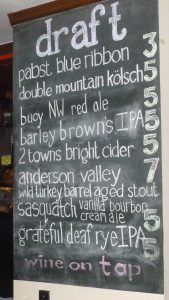 draft
pabst blue ribbon 3
double mountain kölsch 5
buoy NW red ale 5
barley brown's IPA 5
2 towns bright cider 5
anderson valley 7
wild turkey barrel aged stout
sasquatch vanilla bourbon 5
cream ale
grateful deaf rye IPA 5
wine on tap